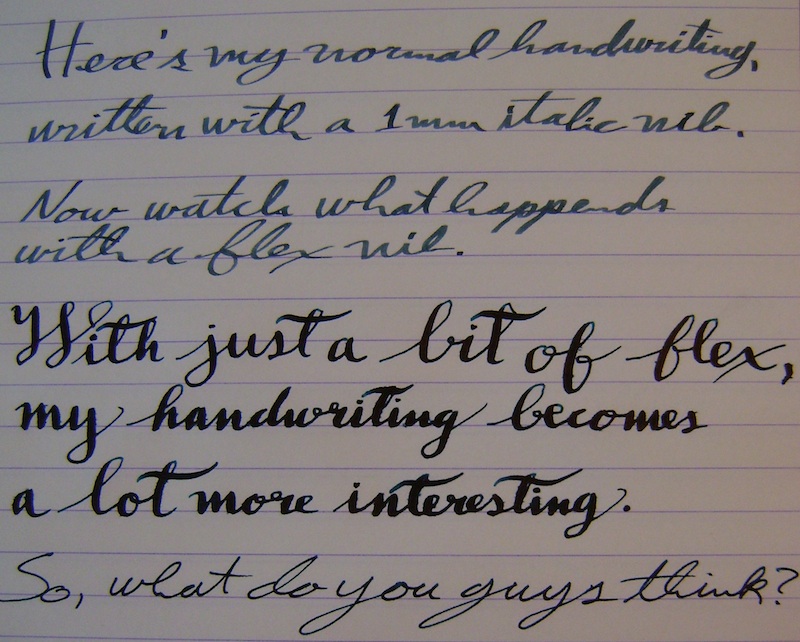 Here's my normal handwriting,
written with a 1mm italic nib.
Now watch what happends
with a flex nib.
With just a bit of flex,
my handwriting becomes
a lot more interesting.
So, what do you guys think?